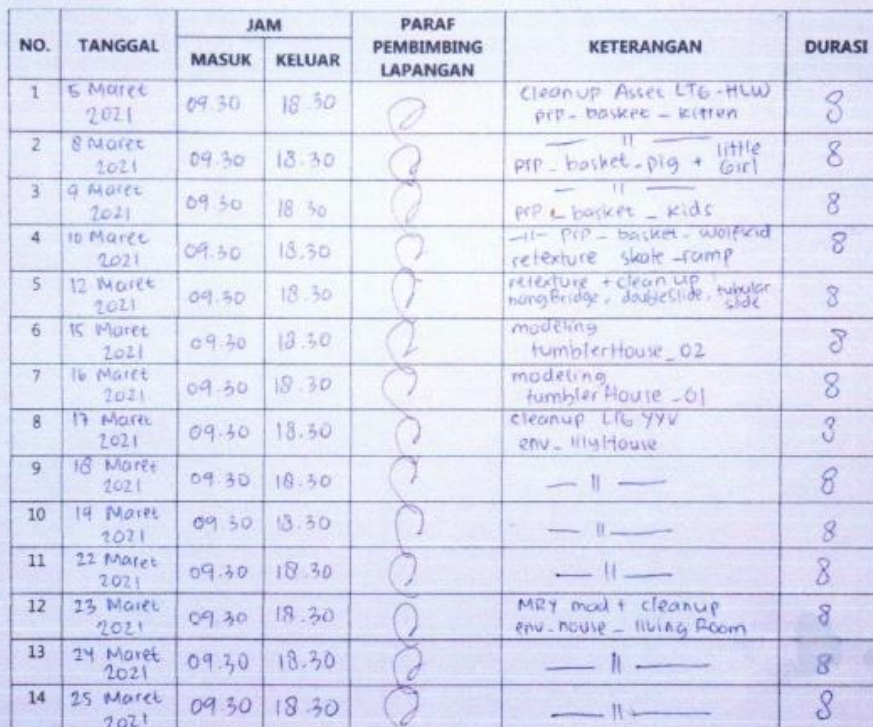 NO. TANGGAL JAM PARAF PEMBIMBING LAPANGAN KETERANGAN DURASI
MASUK KELUAR
1 5 Maret 2021 09.30 18.30 Cleanup Asset LTG-HLW 8
prp_basket_kitten
2 8 Maret 2021 09.30 18.30 — || — 8
prp_basket_pig + little Girl
3 9 Maret 2021 09.30 18 30 — || — 8
prp_basket_kids
4 10 Maret 2021 09.30 18.30 —||— prp_basket_wolfkid 8
retexture skate_ramp
5 12 Maret 2021 09.30 18.30 retexture + clean up 8
hangBridge, doubleSlide, tubular slide
6 15 Maret 2021 09.30 18.30 modeling 8
tumblerHouse_02
7 16 Maret 2021 09.30 18.30 modeling 8
tumblerHouse_01
8 17 Maret 2021 09.30 18.30 cleanup LTG YYV 8
env_lilyHouse
9 18 Maret 2021 09.30 18.30 — || — 8
10 19 Maret 2021 09.30 18.30 — || — 8
11 22 Maret 2021 09.30 18.30 — || — 8
12 23 Maret 2021 09.30 18.30 MRY mod + cleanup 8
env_house_livingRoom
13 24 Maret 2021 09.30 18.30 — || — 8
14 25 Maret 2021 09 30 18 30 — || — 8